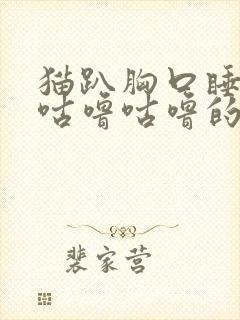 猫趴胸口睡
咕噜咕噜的
裴家营